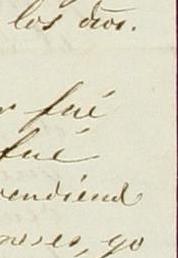 los dios.
r fué
fué
rendiend
meses, yo